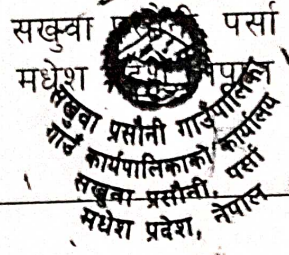 सखुवा प्रसौनी पर्सा
मधेश प्रदेश नेपाल
सखुवा प्रसौनी गाउँपालिका
गाउँ कार्यपालिकाको कार्यालय
सखुवा प्रसौनी, पर्सा
मधेश प्रदेश, नेपाल